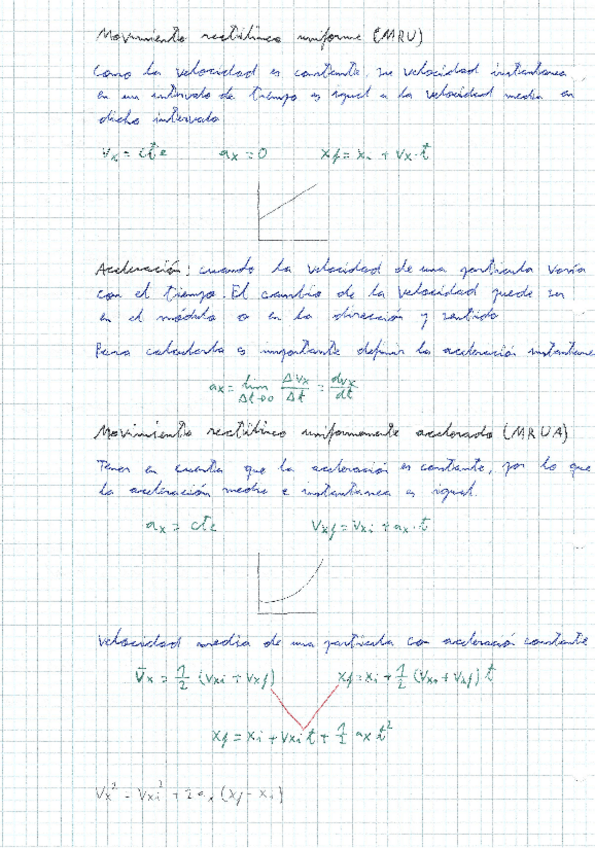 Movimiento rectilíneo uniforme (MRU)
Como la velocidad es constante, su velocidad instantanea
en un intervalo de tiempo es igual a la velocidad media en
dicho intervalo
Vx = cte ax = 0 xf = xi + Vx·t
Aceleración: cuando la velocidad de una particula varía
con el tiempo. El cambio de la velocidad puede ser
en el módulo o en la dirección y sentido
Para calcularla es importante definir la aceleración instantane
ax = lim Δt→0 ΔVx/Δt = dvx/dt
Movimiento rectilíneo uniformemente acelerado (MRUA)
Tener en cuenta que la aceleración es constante, por lo que
la aceleración media e instantanea es igual.
ax = cte Vxf = Vxi + ax·t
Velocidad media de una particula con aceleración constante
V̄x = 1/2 (Vxi + Vxf) xf = xi + 1/2 (Vxi + Vxf) t
xf = xi + Vxi t + 1/2 ax t²
Vx² = Vxi² + 2ax (xf - xi)